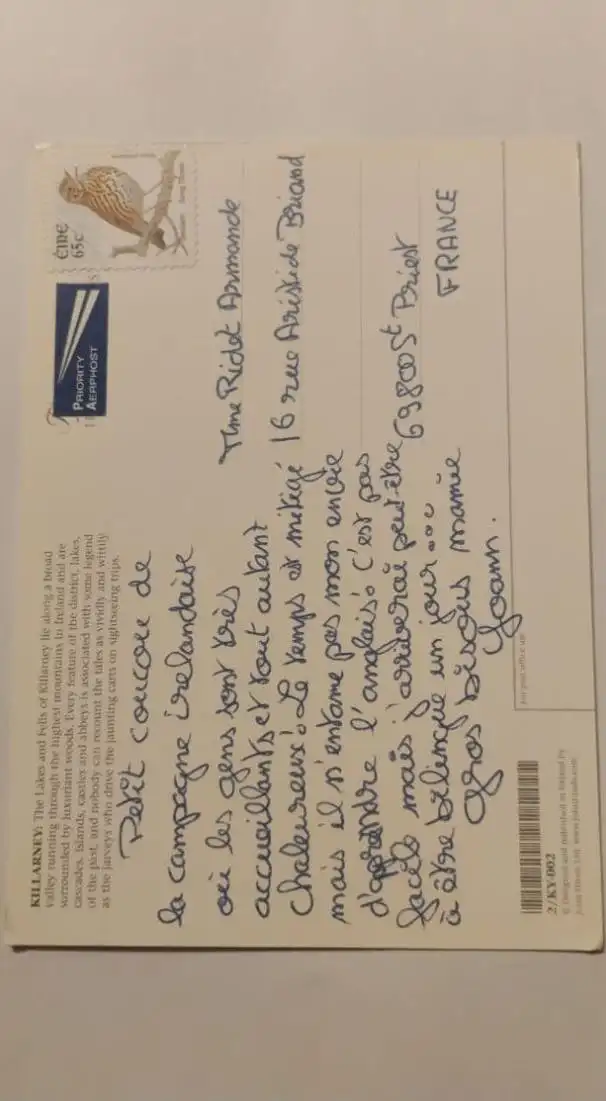 KILLARNEY: The Lakes and Fells of Killarney lie along a broad
valley running through the highest mountains in Ireland and are
surrounded by luxuriant woods. Every feature of the district, lakes,
cascades, islands, castles and abbeys is associated with some legend
of the past, and nobody can recount the tales as vividly and wittily
as the jarveys who drive the jaunting carts on sightseeing trips.
PRIORITY
AERPHOST
ÉIRE
65c
Petit coucou de
la campagne irelandaise
où les gens sont très
accueillants et tout autant
chaleureux! Le temps est mitigé
mais il n'entame pas mon envie
d'apprendre l'anglais! C'est pas
facile mais j'arriverai peut-être
à être bilingue un jour...
Gros bisous mamie
Yoann.
Mme Ridet Armande
16 rue Aristide Briand
69800 St Priest
FRANCE
for post office use
2/KY-002
© Designed and published in Ireland by
John Hinde Ltd. www.johnhinde.com